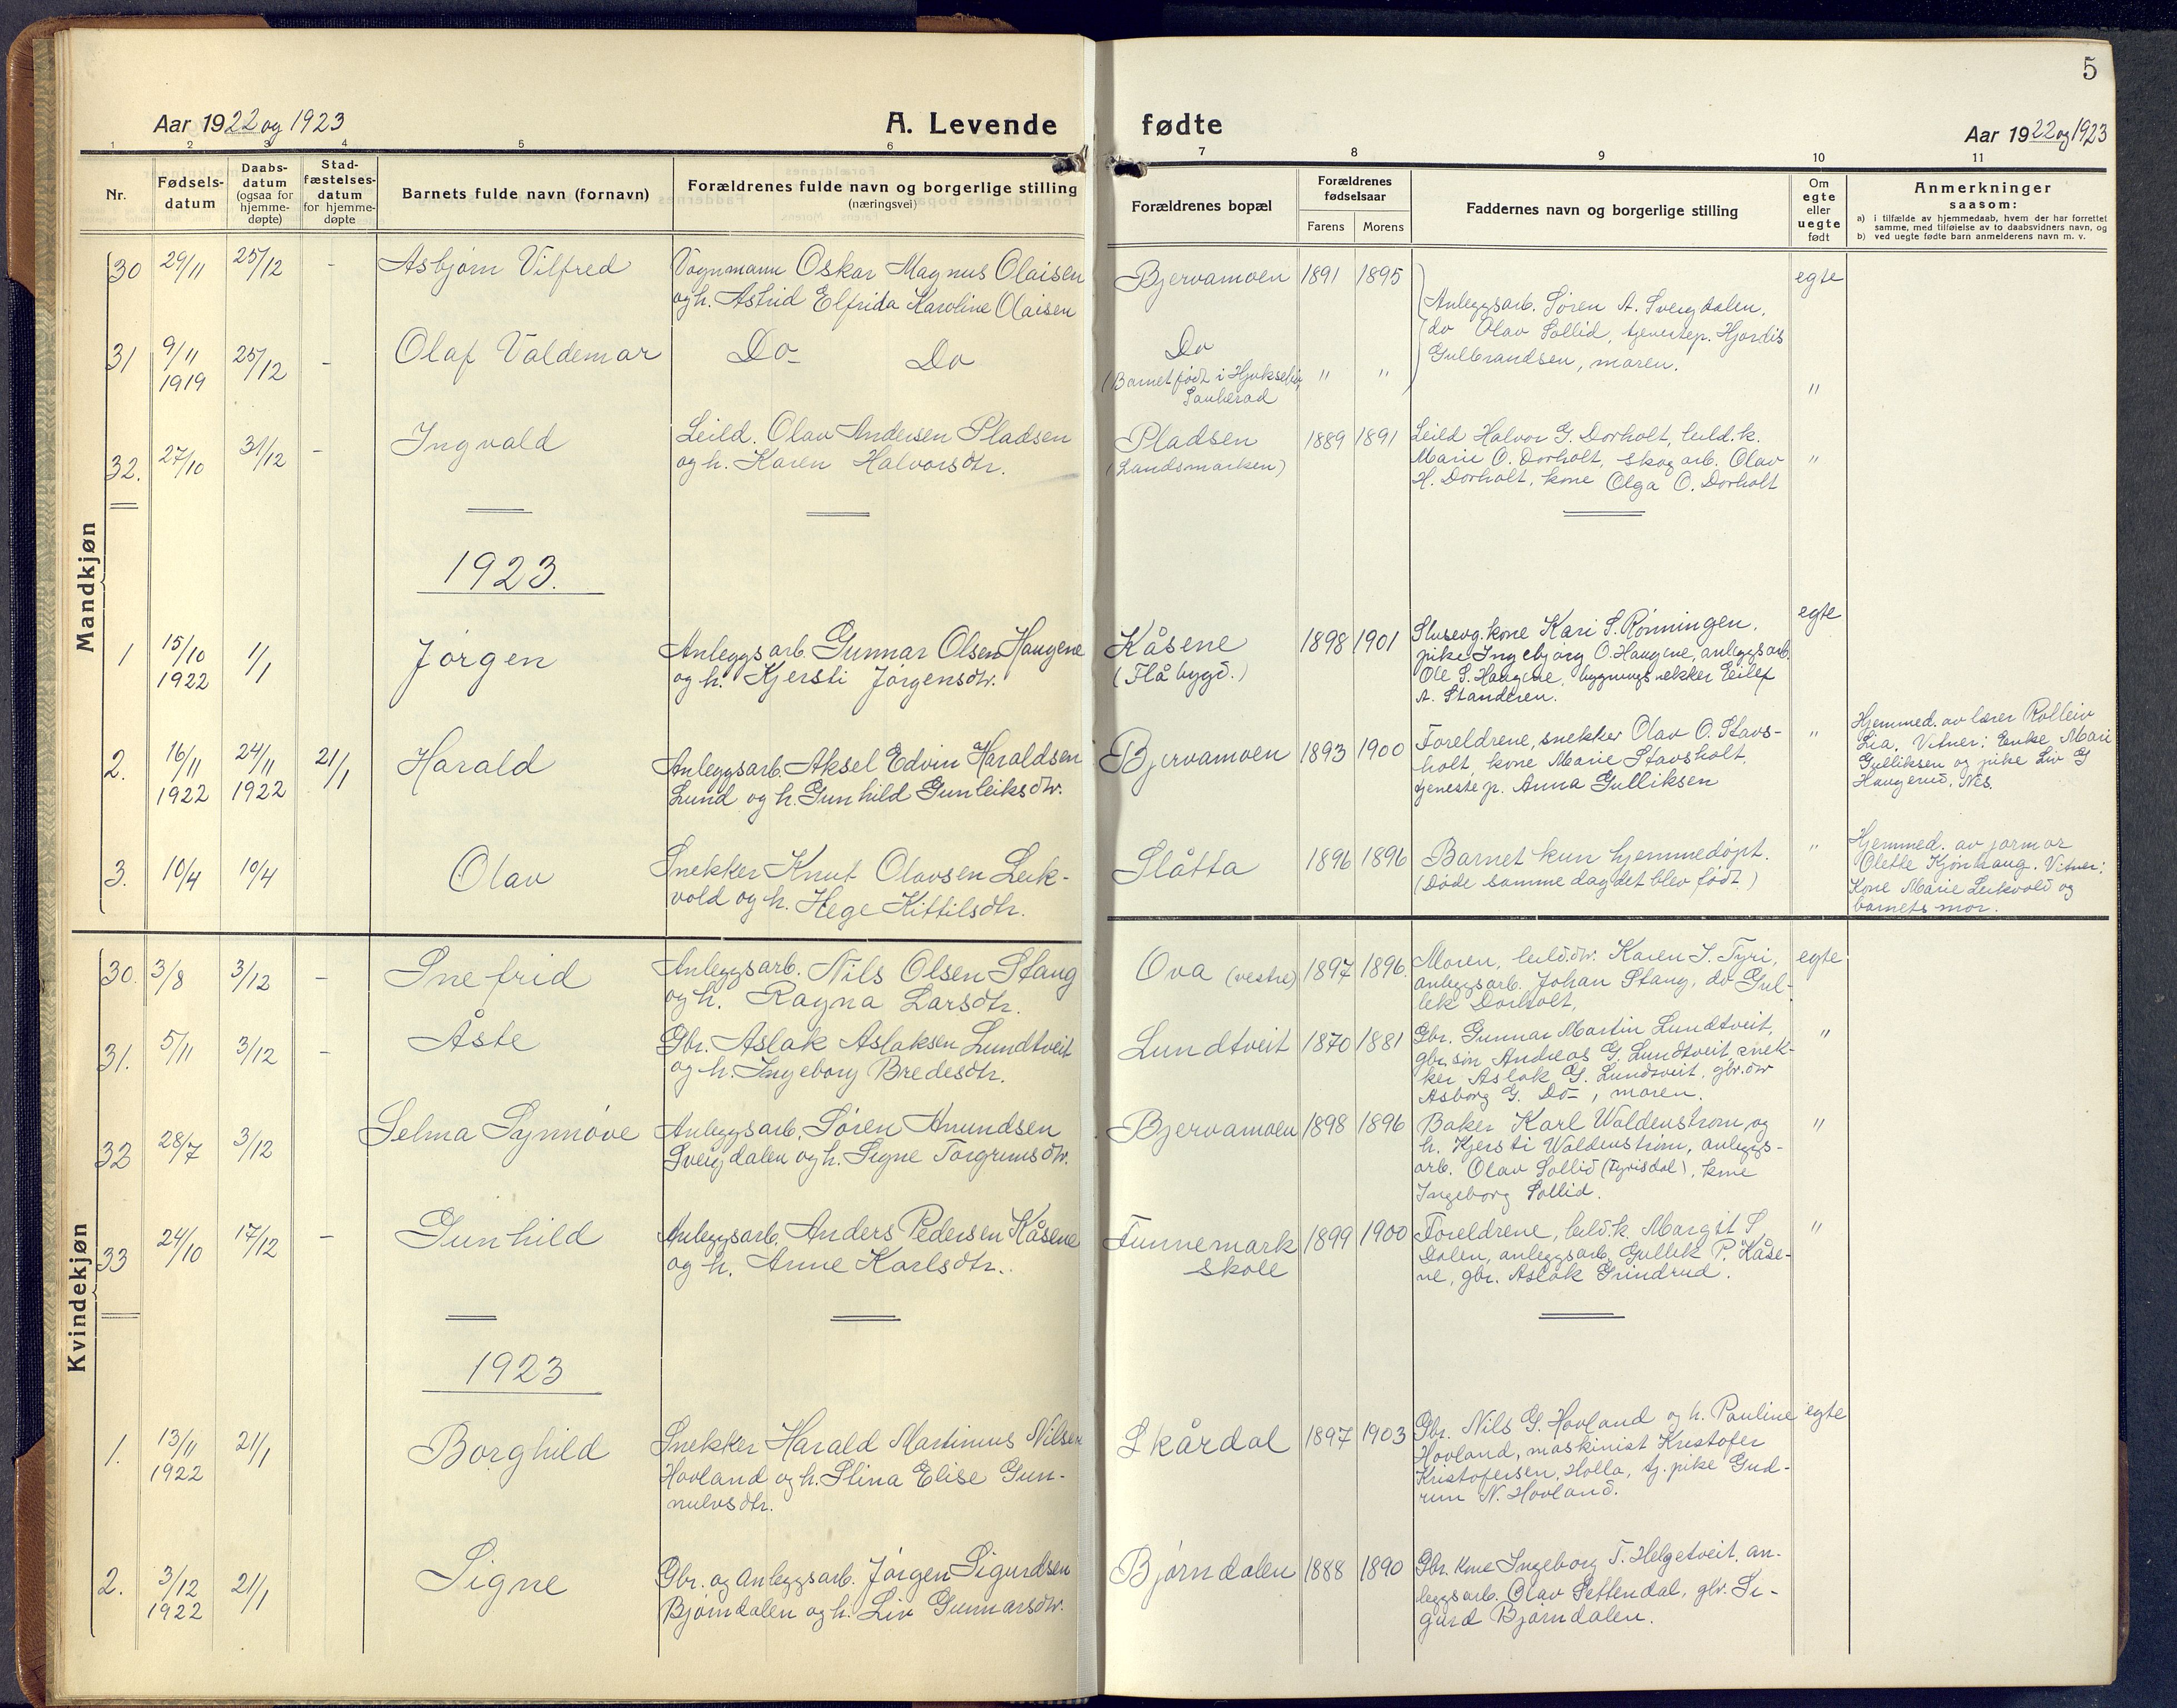 5
Aar 1922 og 1923
A. Levende
fødte
Aar 1922 og 1923
1 2 3 4 5 6 7 8 9 10 11
Nr.
Fødsels-
datum
Daabs-
datum
(ogsaa for
hjemme-
døpte)
Stad-
fæstelses-
datum
for hjemme-
døpte
Barnets fulde navn (fornavn)
Forældrenes fulde navn og borgerlige stilling
(næringsvei)
Forældrenes bopæl
Forældrenes
fødselsaar
Farens Morens
Faddernes navn og borgerlige stilling
Om
egte
eller
uegte
født
Anmerkninger
saasom:
a) i tilfælde av hjemmedaab, hvem der har forrettet
samme, med tilføielse av to daabsvidners navn, og
b) ved uegte fødte barn anmelderens navn m. v.
Mandkjøn
30 29/11 25/12 - Asbjørn Vilfred
Vognmann Oskar Magnus Olaisen
og h. Astrid Elfrida Karoline Olaisen
Bjervamoen 1891 1895
Anleggsarb. Søren A. Sveigdalen,
do Olav Sollid, tjenestep. Hjørdis
Gulbrandsen, moren.
egte
31 9/11 1919 25/12 - Olaf Valdemar
Do- Do
Do
(Barnet født i Hjukseliø,
Sauherad
" "
"
32. 27/10 31/12 - Ingvald
Leild. Olav Andersen Pladsen
og h. Karen Halvorsdtr.
Pladsen
(Landsmarken)
1889 1891
Leild Halvor G. Dorholt, leild.k.
Marie O. Dorholt, skogarb. Olav
H. Dorholt, kone Olga O. Dorholt
"
1923.
1 15/10 1922 1/1 Jørgen
Anleggsarb. Gunnar Olsen Haugene
og h. Kjersti Jørgensdtr.
Kåsene
(Flåbygd.)
1898 1901
Slusevg. kone Kari S. Rønningen,
pike Ingebjørg O. Haugene, anleggsarb.
Ole S. Haugene, bygningssnekker Eilef
A. Standeren.
egte
2. 16/11 1922 24/11 1922 21/1 Harald
Anleggsarb. Aksel Edvin Haraldsen
Lund og h. Gunhild Gunleiksdtr.
Bjervamoen 1893 1900
Foreldrene, snekker Olav O. Stavs-
holt, kone Marie Stavsholt,
tjeneste p. Anna Gulliksen
"
Hjemmed. av lærer Rolleiv
Lia. Vitner: Enke Mari
Gulliksen og pike Liv G
Haugerud, Nes.
3. 10/4 10/4 Olav
Snekker Knut Olavsen Leik-
vold og h. Hege Kittilsdtr.
Slåtta 1896 1896
Barnet kun hjemmedøpt.
(Døde samme dag det blev født)
"
Hjemmed. av jormor
Olette Kjønhaug. Vitner:
Kone Marie Leikvold og
barnets mor.
Kvindekjøn
30. 3/8 3/12 - Snefrid
Anleggsarb. Nils Olsen Stang
og h. Ragna Larsdtr.
Ova (vestre) 1897 1896.
Moren, leild.dtr. Karen J. Tyri,
anleggsarb. Johan Stang, do Gul-
lek Dorholt,
egte
31. 5/11 3/12 - Åste
Gbr. Aslak Aslaksen Lundtveit
og h. Ingeborg Bredesdtr.
Lundtveit 1870 1881
Gbr. Gunnar Martin Lundtveit,
gbr. søn Andreas G. Lundtveit, snek-
ker Aslak G. Lundtveit, gbr. dtr
Asborg G. Do-, moren.
"
32 28/7 3/12 Selma Synnøve
Anleggsarb. Søren Amundsen
Sveigdalen og h. Signe Torgrimsdtr.
Bjervamoen 1898 1896
Baker Karl Waldenstrøm og
h. Kjersti Waldenstrøm, anleggs-
arb. Olav Sollid (Tyrisdal), kone
Ingeborg Sollid.
"
33 24/10 17/12 - Gunhild
Anleggsarb. Anders Pedersen Kåsene
og h. Anne Karlsdtr.
Funnemark
skole
1899 1900
Foreldrene, leild.k. Margit S
Dalen, anleggsarb. Gullek P. Kåse-
ne, gbr. Aslak Grindrud.
"
1923
1. 13/11 1922 21/1 Borghild
Snekker Harald Martinus Nilsen
Hovland og h. Stina Elise Gun-
nulvsdtr.
Skårdal 1897 1903
Gbr. Nils G. Hovland og h. Pauline
Hovland, maskinist Kristofer
Kristofersen, Holla, tj. pike Gud-
run N. Hovland.
egte
2. 3/12 1922 21/1 Signe
Gbr. og anleggsarb. Jørgen Sigurdsen
Bjørndalen og h. Liv Gunnarsdtr.
Bjørndalen 1888 1890
Gbr. kone Ingeborg T. Helgetveit, an-
leggsarb. Olav Settendal, gbr. Si-
gurd Bjørndalen.